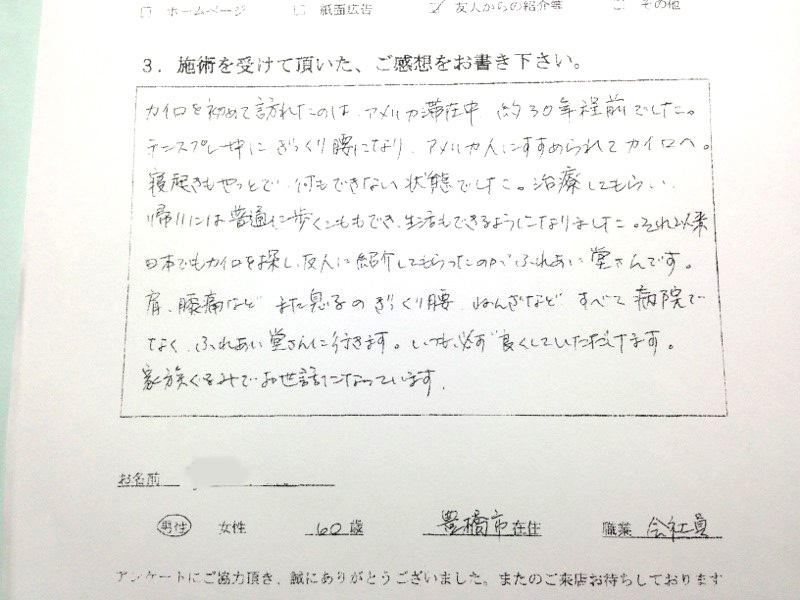 □ ホームページ □ 紙面広告 ☑ 友人からの紹介等 □ その他
3．施術を受けて頂いた、ご感想をお書き下さい。
カイロを初めて訪れたのは、アメリカ滞在中、約30年程前でした。
テニスプレー中にぎっくり腰になり、アメリカ人にすすめられてカイロへ。
寝起きもやっとで、何もできない状態でした。治療してもらい、
帰りには普通に歩くこともでき、生活もできるようになりました。それ以来
日本でもカイロを探し、友人に紹介してもらったのが、ふれあい堂さんです。
肩、膝痛など、また息子のぎっくり腰、ねんざなど、すべて病院で
なく、ふれあい堂さんに行きます。いつも必ず良くしていただけます。
家族ぐるみでお世話になっています。
お名前
男性 女性 60歳 豊橋市在住 職業 会社員
アンケートにご協力頂き、誠にありがとうございました。またのご来店お待ちしております